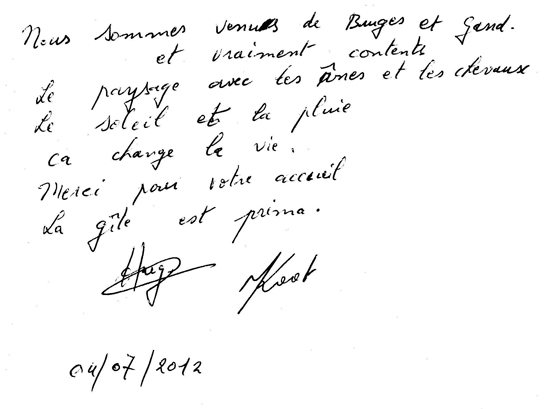 Nous sommes venus de Bruges et Gand.
et vraiment contents
Le paysage avec les ânes et les chevaux
Le soleil et la pluie
ca change la vie.
Merci pour votre accueil
La gîte est prima.
Hugo Koot
04/07/2012